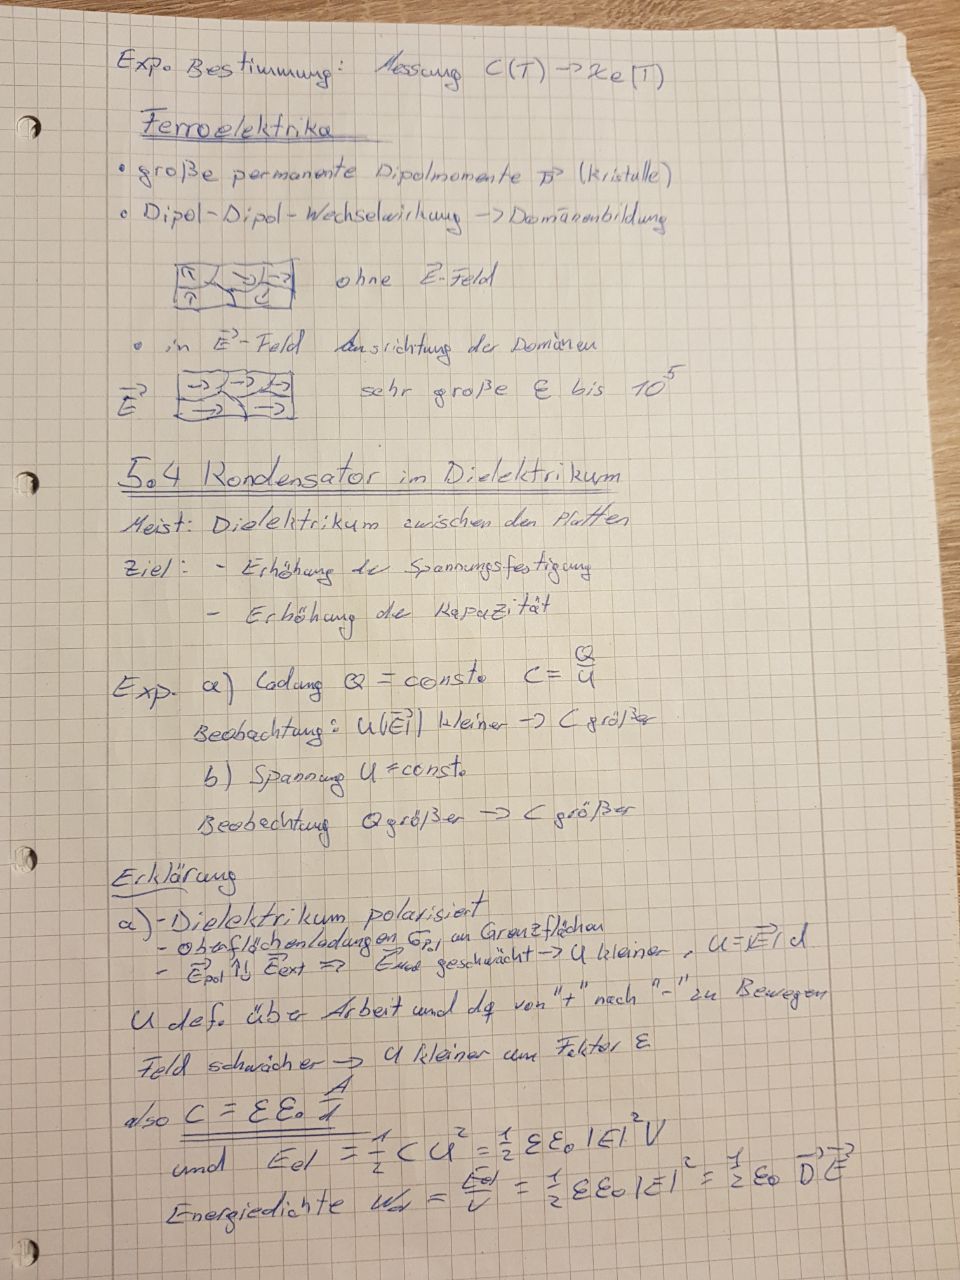 Exp. Bestimmung: Messung C(T) → χe(T)
Ferroelektrika
• große permanente Dipolmomente p⃗ (Kristalle)
• Dipol-Dipol-Wechselwirkung → Domänenbildung
↑ → → ohne E⃗-Feld
↑ ↙
• in E⃗-Feld Ausrichtung der Domänen
E⃗ → → → sehr große ε bis 10⁵
→ →
5.4 Kondensator im Dielektrikum
Meist: Dielektrikum zwischen den Platten
Ziel: - Erhöhung der Spannungsfestigung
- Erhöhung der Kapazität
Exp. a) Ladung Q = const. C = Q/U
Beobachtung: U(|E⃗|) kleiner → C größer
b) Spannung U = const.
Beobachtung Q größer → C größer
Erklärung
a) - Dielektrikum polarisiert
- Oberflächenladungen σpol an Grenzflächen
- E⃗pol ↑↓ E⃗ext ⇒ geschwächt → U kleiner, U = |E⃗| d
U def. über Arbeit und dq von "+" nach "-" zu Bewegen
Feld schwächer → U kleiner um Faktor ε
also C = εε₀ A/d
und Eel = 1/2 C U² = 1/2 εε₀ |E|² V
Energiedichte Wel = Eel/V = 1/2 εε₀ |E|² = 1/2 ε₀ D⃗E⃗